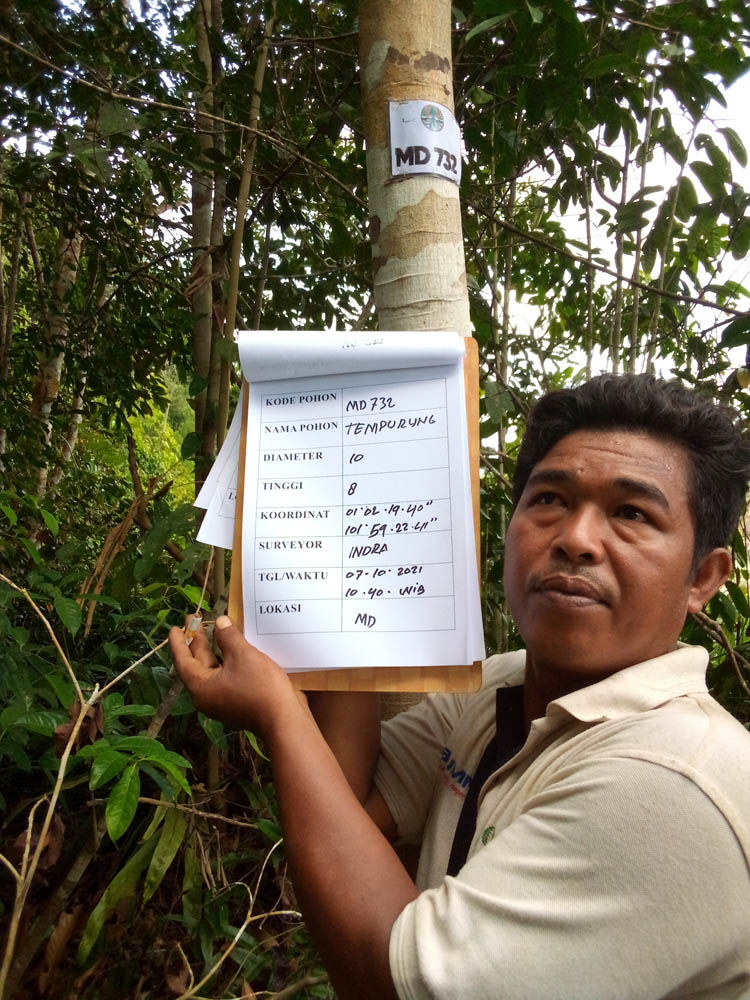 MD 732
KODE POHON MD732
NAMA POHON TEMPURUNG
DIAMETER 10
TINGGI 8
KOORDINAT 01°02.19.40"
101°59.22.41"
SURVEYOR INDRA
TGL/WAKTU 07-10-2021
10.40. WIB
LOKASI MD